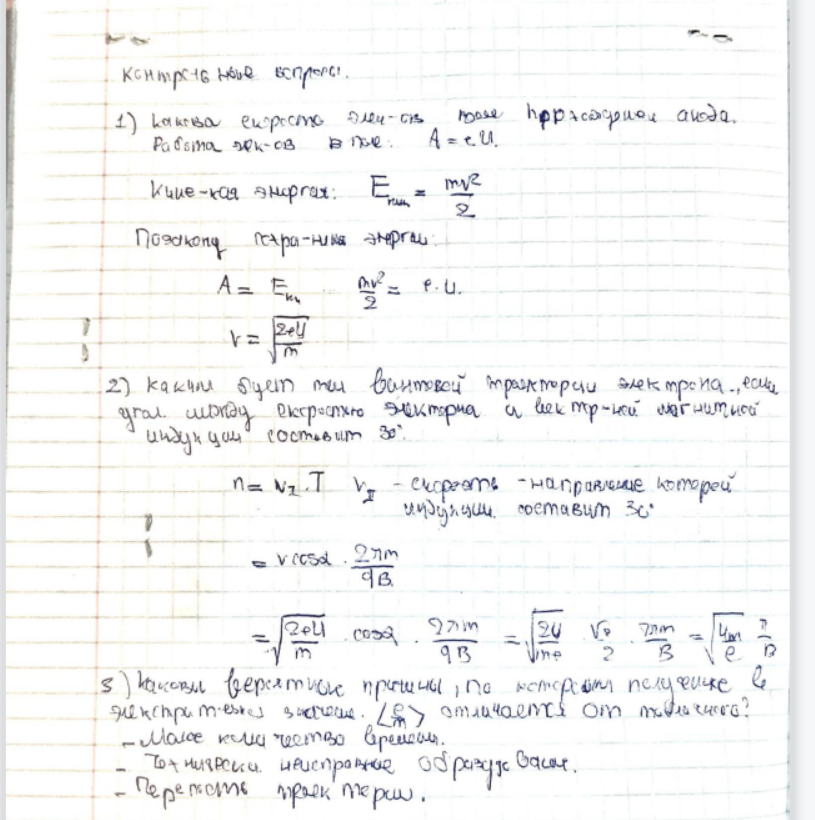 Контрольные вопросы.
1) Какова скорость элек-ов после прохождения анода.
Работа эл-ов в поле: A = e.U.
Кине-кая энергия: Eкин = mv²/2
По закону сохра-ния энергии:
A = Eки mv²/2 = e.U.
v = √(2eU/m)
2) Каким будет шаг винтовой траектории электрона, если
угол между скоростью электорна и вектр-ной магнитной
индукции составит 30°.
n = v_I . T v_II - скорость - направление которой
индукции составит 30°
= v cosα . 2πm/qB
= √(2eU/m) . cosα . 2πm/qB = . 2πm/B = π/B
3) Каковы вероятные причины, по которым полученное в
значение <e/m> отличается от табличного?
- Малое количество времени.
- Технически неисправные
- траектерии.